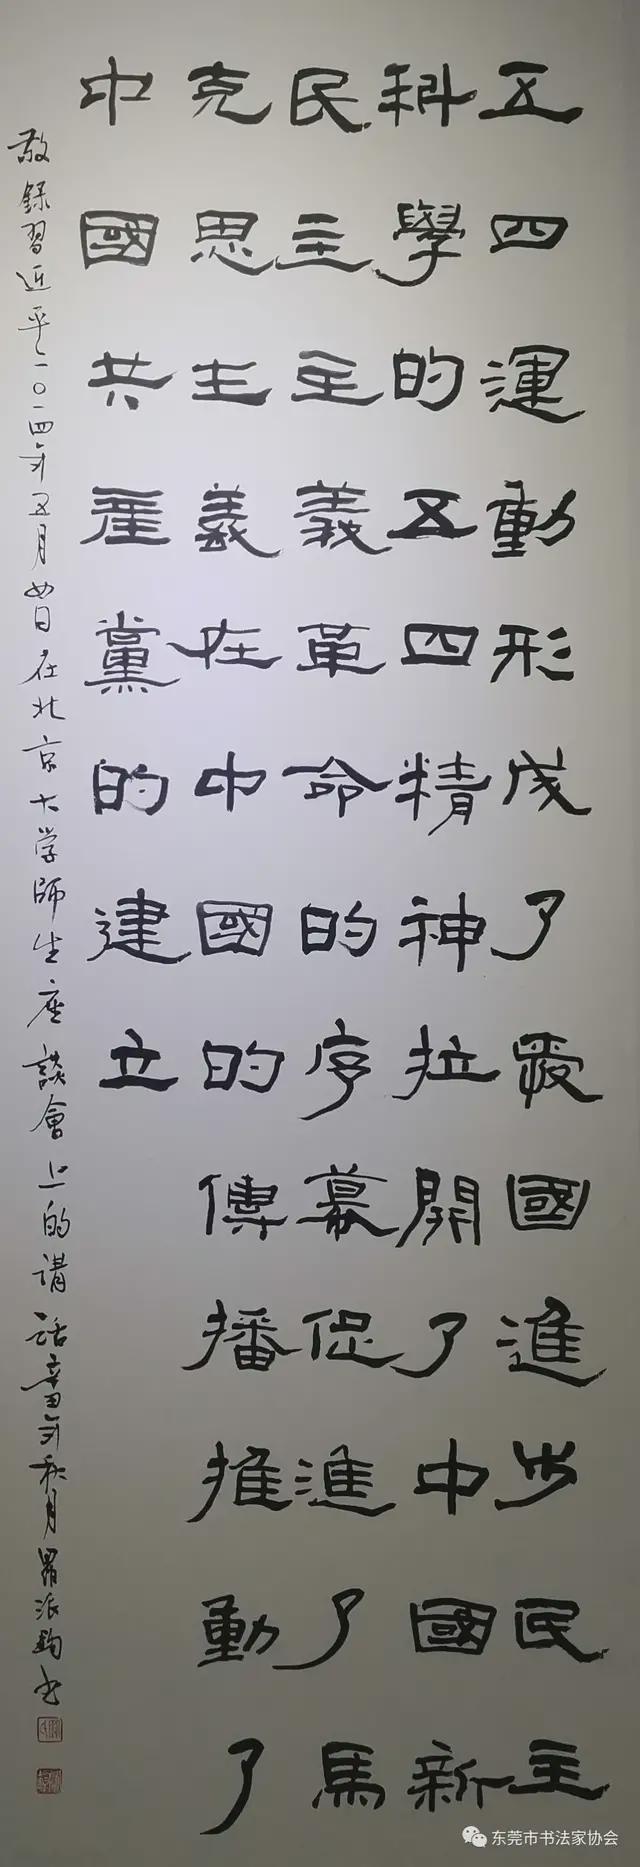 五四運動形成了愛國進步民主
科學的五四精神拉開了中國新
民主主義革命的序幕促進了馬
克思主義在中國的傳播推動了
中國共產黨的建立
敬錄習近平二〇一四年五月四日在北京大学師生座談會上的講話辛丑年秋月羅派鈞書
东莞市书法家协会